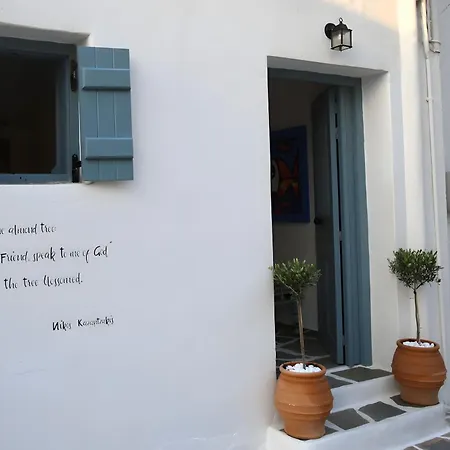 almond tree
"Friend, speak to me of God"
the tree blossomed.
Nikos Kazantzakis